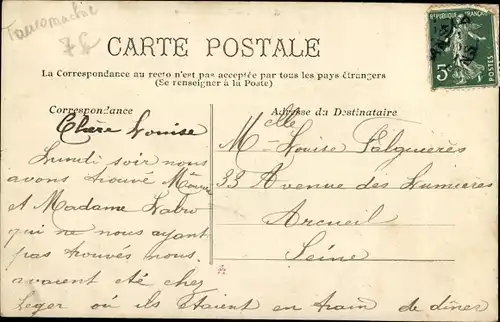 Tauromachie
7£
CARTE POSTALE
La Correspondance au recto n'est pas acceptée par tous les pays étrangers
(Se renseigner à la Poste)
Correspondance
Chère Louise
Lundi soir nous
avons trouvé
et Madame Labro
qui ne nous ayant
pas trouvés nous
avaient été chez
Leger où ils étaient en train de dîner
Adresse du Destinataire
Melle Louise Falguières
33 Avenue des Lumières
Arcueil
Seine
REPUBLIQUE FRANÇAISE
5c
POSTES